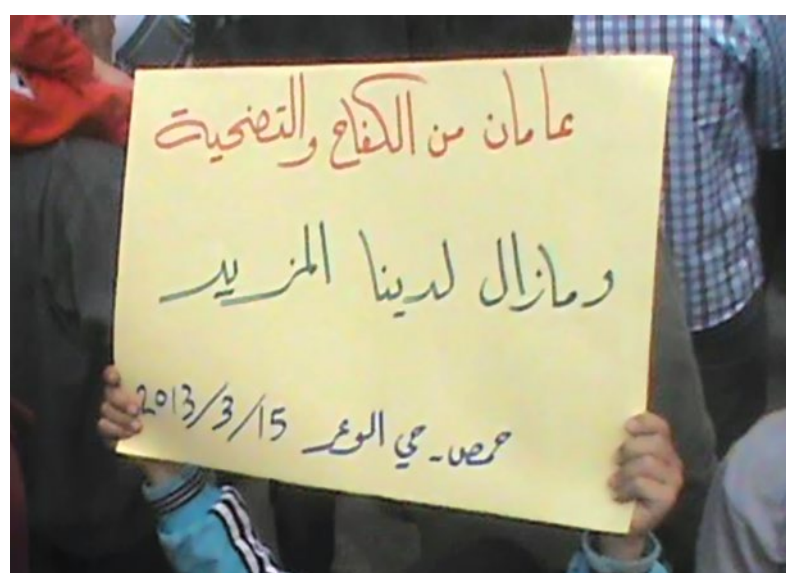 عامان من الكفاح والتضحية
ومازال لدينا المزيد
حمص - حي الوعر 2013/3/15